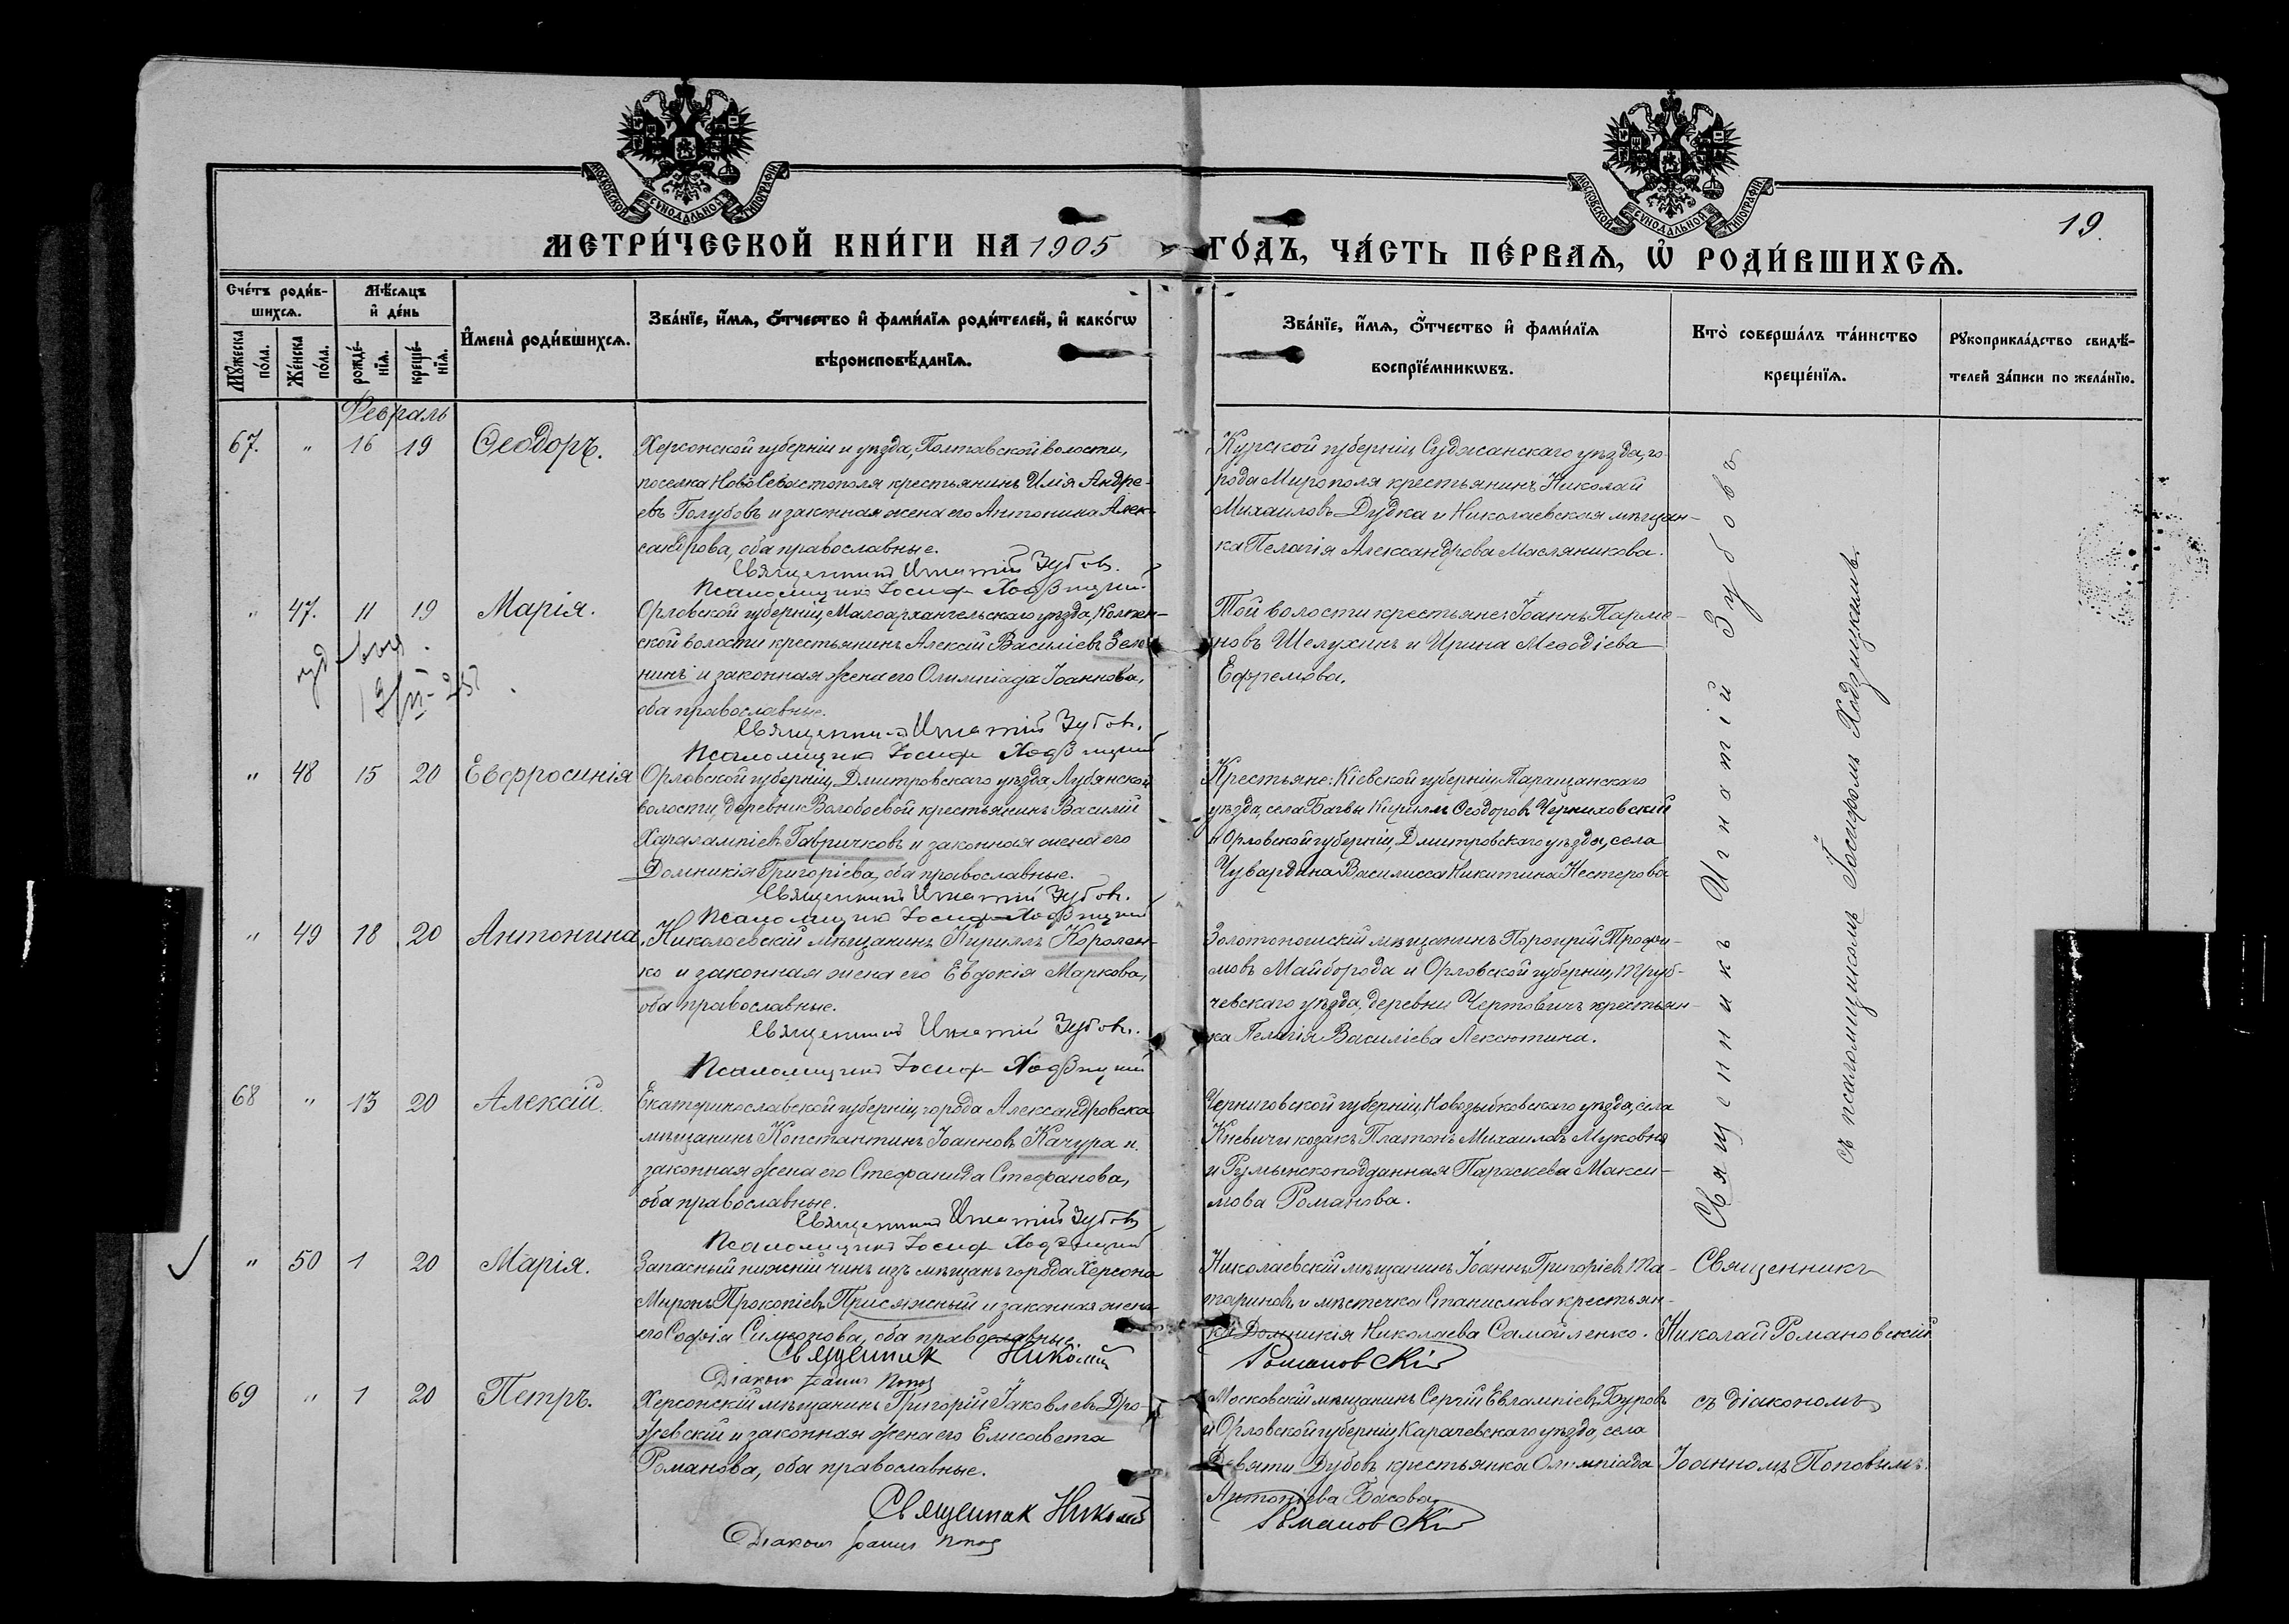 МОСКОВСКОЙ СѴНОДАЛЬНОЙ ТИПОГРАФІИ
МОСКОВСКОЙ СѴНОДАЛЬНОЙ ТИПОГРАФІИ
19.
МЕТРИ́ЧЕСКОЙ КНИ́ГИ НА 1905 ГО́ДЪ, ЧА́СТЬ ПЕ́РВАѦ, Ѡ҆ РОДИ́ВШИХСѦ.
Сче́тъ роди́в-
шихсѧ.
Мꙋ́жеска по́ла.
Же́нска по́ла.
Мѣ́сѧцъ
и҆ де́нь
рожде́-
нїѧ.
креще́-
нїѧ.
И҆мена̀ роди́вшихсѧ.
Зва́нїе, и҆́мѧ, ѻ҆́тчество и҆ фами́лїѧ роди́телей, и҆ како́гѡ
вѣроисповѣ́данїѧ.
Зва́нїе, и҆́мѧ, ѻ҆́тчество и҆ фами́лїѧ
воспрїе́мникѡвъ.
Кто̀ соверша́лъ та́инство
креще́нїѧ.
Рꙋкоприкла́дство свидѣ́-
телей за́писи по жела́нїю.
Февраль
67. " 16 19 Ѳеодоръ.
Херсонской губерніи и уѣзда, Полтавской волости,
поселка Ново Севастополя крестьянинъ Илія Андре-
евъ Голубовъ и законная жена его Антонина Алек-
сандрова, оба православные.
Священникъ Игнатій Зубовъ.
Псаломщикъ Іосифъ Ходзицкій
Курской губерніи Суджанскаго уѣзда, го-
рода Мирополя крестьянинъ Николай
Михаиловъ Дудка и Николаевская мѣщан-
ка Пелагія Александрова Масляникова.
" 47. 11 19 Марія.
Орловской губерніи, Малоархангельскаго уѣзда, Колпен-
ской волости крестьянинъ Алексій Василіевъ Зеле-
нинъ и законная жена его Олимпіада Іоаннова,
оба православные.
Священникъ Игнатій Зубовъ.
Псаломщикъ Іосифъ Ходзицкій
Той волости крестьяне: Іоаннъ Парме-
новъ Шелухинъ и Ирина Меѳодіева
Ефремова.
" 48 15 20 Евфросинія
Орловской губерніи, Дмитровскаго уѣзда, Лубянской
волости, деревни Волобоевой крестьянинъ Василій
Харалампіевъ Гавричковъ и законная жена его
Домникія Григоріева, оба православные.
Священникъ Игнатій Зубовъ.
Псаломщикъ Іосифъ Ходзицкій
Крестьяне: Кіевской губерніи, Таращанскаго
уѣзда, села Багвы Кириллъ Ѳеодоровъ Черниховскій
и Орловской губерніи, Дмитровскаго уѣзда, села
Чувардина Василисса Никитина Нестерова
" 49 18 20 Антонина
Николаевскій мѣщанинъ Кириллъ Королен-
ко и законная жена его Евдокія Маркова,
оба православные.
Священникъ Игнатій Зубовъ.
Псаломщикъ Іосифъ Ходзицкій
Золотоношскій мѣщанинъ Порфирій Трофи-
мовъ Майборода и Орловской губерніи, Труб-
чевскаго уѣзда, деревни Чертовичъ крестьян-
ка Пелагія Василіева Лексютина.
68 " 13 20 Алексій.
Екатеринославской губерніи, города Александровска
мѣщанинъ Константинъ Іоанновъ Качура и
законная жена его Стефанида Стефанова,
оба православные.
Священникъ Игнатій Зубовъ
Псаломщикъ Іосифъ Ходзицкій
Черниговской губерніи, Новозыбковскаго уѣзда, села
Киевичи козакъ Платонъ Михаиловъ Муковня
и Румынскоподданная Параскева Макси-
мова Романова.
Священникъ Игнатій Зубовъ
съ псаломщикомъ Іосифомъ Ходзицкимъ.
" 50 1 20 Марія.
Запасный нижній чинъ изъ мѣщанъ города Херсона
Миронъ Прокопіевъ Присяжный и законная жена
его Софія Симонова, оба православные.
Священник Николай Романовскій
Діаконъ Іоаннъ Попов
Николаевскій мѣщанинъ Іоаннъ Григоріевъ Та-
тариновъ и мѣстечка Станислава крестьян-
ка Домникія Николаева Самойленко.
Священникъ
Николай Романовскій
69 " 1 20 Петръ.
Херсонскій мѣщанинъ Григорій Іаковлевъ Дро-
жевскій и законная жена его Елисавета
Романова, оба православные.
Священник Николай Романовскій
Діаконъ Іоаннъ Попов
Московскій мѣщанинъ Сергій Евлампіевъ Буровъ
и Орловской губерніи, Карачевскаго уѣзда, села
Девяти Дубовъ крестьянка Олимпіада
Антоніева Басова.
съ діакономъ
Іоанномъ Поповымъ.